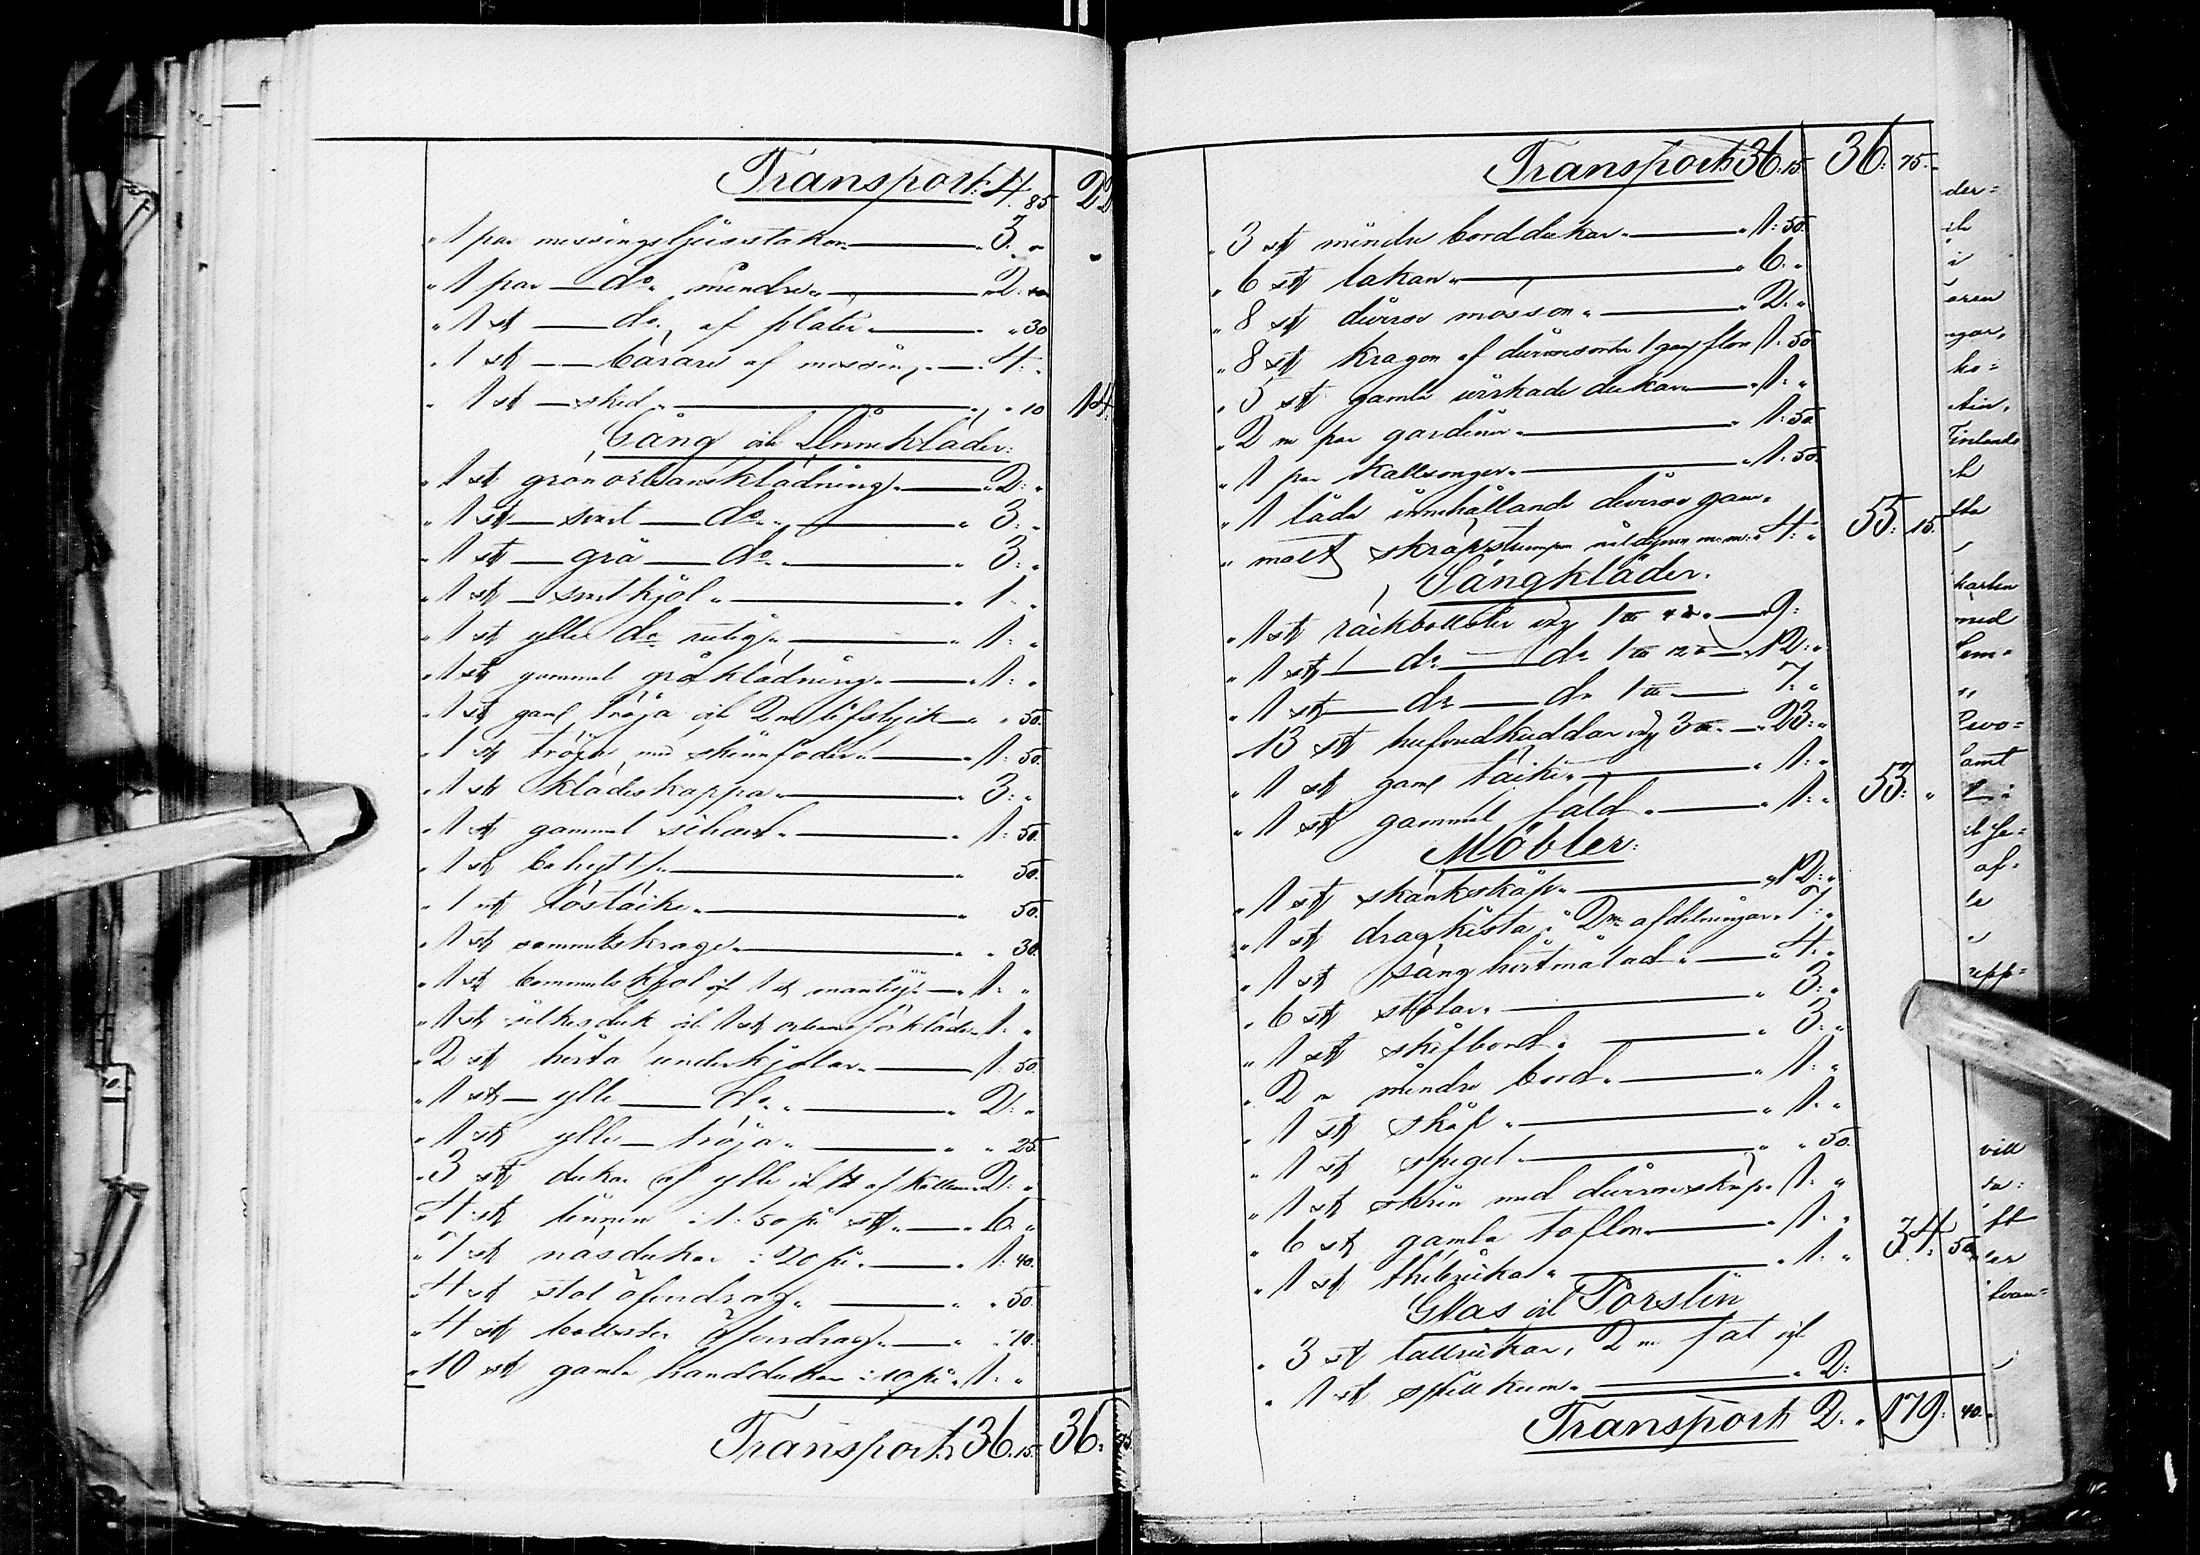 Transport. 4. 85 22
" 1 par messingsljusstakar " 3. "
" 1 par — do. mindre " 2. "
" 1 st — do. af plåter " " 30
" 1 st — bärare af messing " 4: "
" 1 st — sked " " 10 14.
Gång och Linnekläder:
" 1 st grönorleansklädning " 2: "
" 1 st — svart — do. " 3: "
" 1 st — grå — do. " 3: "
" 1 st — svart kjol " 1: "
" 1 st ylle do rutig " 1: "
" 1 st gammal gråklädning " 1: "
" 1 st gaml tröja och 2 ne lifstyck " " 50.
" 1 st tröja med skinnfoder " 1: 50.
" 1 st klädeskappa " 3: "
" 1 st gammal schavl " 1: 50.
" 1 st bahytt " 50.
" 1 st löstäcke " 50.
" 1 st sammetskrage " " 30.
" 1 st bommulls kjol och 1 st mantlig " 1: "
" 1 st silkesduk och 1 st förkläde " 1: "
" 2 st hvita underkjolar " 1: 50.
" 1 st — ylle — do. " 2: "
" 1 st ylle — tröja " " 25.
" 3 st dukar af ylle och 1 st af kattun " 2: "
" 4 st linnen à 1: 50 pi st. " 6: "
" 7 st näsdukar à 20 pi " 1: 40.
" 4 st stol öfverdrag " " 50.
" 4 st bollster öfverdrag " " 70.
" 10 st gamla handdukar à 10 pi " 1: "
Transport. 36. 15. 36. 75.
Transport 36. 15 36: 75.
" 3 st mindre borddukar " 1: 50.
" 6 st lakan " 6. "
" 8 st diverse mössor " 2: "
" 8 st kragar af 1: 50
" 5 st gamla virkade dukar " 1: "
" 2 ne par gardiner " 1: 50.
" 1 par kallsonger " 1: 50.
" 1 låda innehållande diverse gam-
" malt skräp, strumpor m. m. 4: " 55: 15.
Sängkläder.
" 1 st räckbollster väg 1 9:
" 1 st — do — do 1 12: "
" 1 st — do — do 1 7: "
" 13 st hufvudkuddar väg 3 23: "
" 1 st gaml täcke " 1: "
" 1 st gammal fäld " 1: " 53: "
Möbler:
" 1 st skänkskåp " 12: "
" 1 st dragkista i 2ne afdelningar " 7: "
" 1 st säng hvitmålad " 4: "
" 6 st stolar " 3: "
" 1 st skifbord " 3: "
" 2 ne mindre bord " 1: "
" 1 st skåp " 1: "
" 1 st spegel " " 50.
" 1 st skrin med diverse skräp " 1: "
" 6 st gamla taflor " 1: "
" 1 st thébricka " 1: " 34: 50.
Glas och Porslin
" 3 st tallrickar, 2 ne fat och
" 1 st spillkum " 2:
Transport 2. " 179: 40.